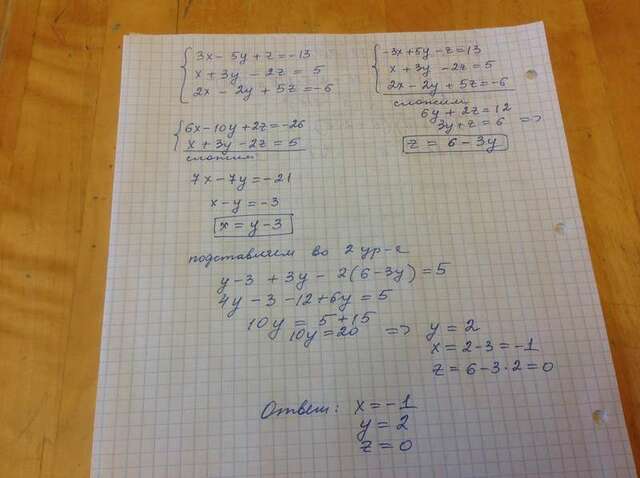 3x - 5y + z = -13
x + 3y - 2z = 5
2x - 2y + 5z = -6
6x - 10y + 2z = -26
x + 3y - 2z = 5
сложим
7x - 7y = -21
x - y = -3
x = y - 3
-3x + 5y - z = 13
x + 3y - 2z = 5
2x - 2y + 5z = -6
сложим
6y + 2z = 12
3y + z = 6 =>
z = 6 - 3y
подставляем во 2 ур-е
y - 3 + 3y - 2(6 - 3y) = 5
4y - 3 - 12 + 6y = 5
10y = 5 + 15
10y = 20 => y = 2
x = 2 - 3 = -1
z = 6 - 3·2 = 0
Ответ: x = -1
y = 2
z = 0